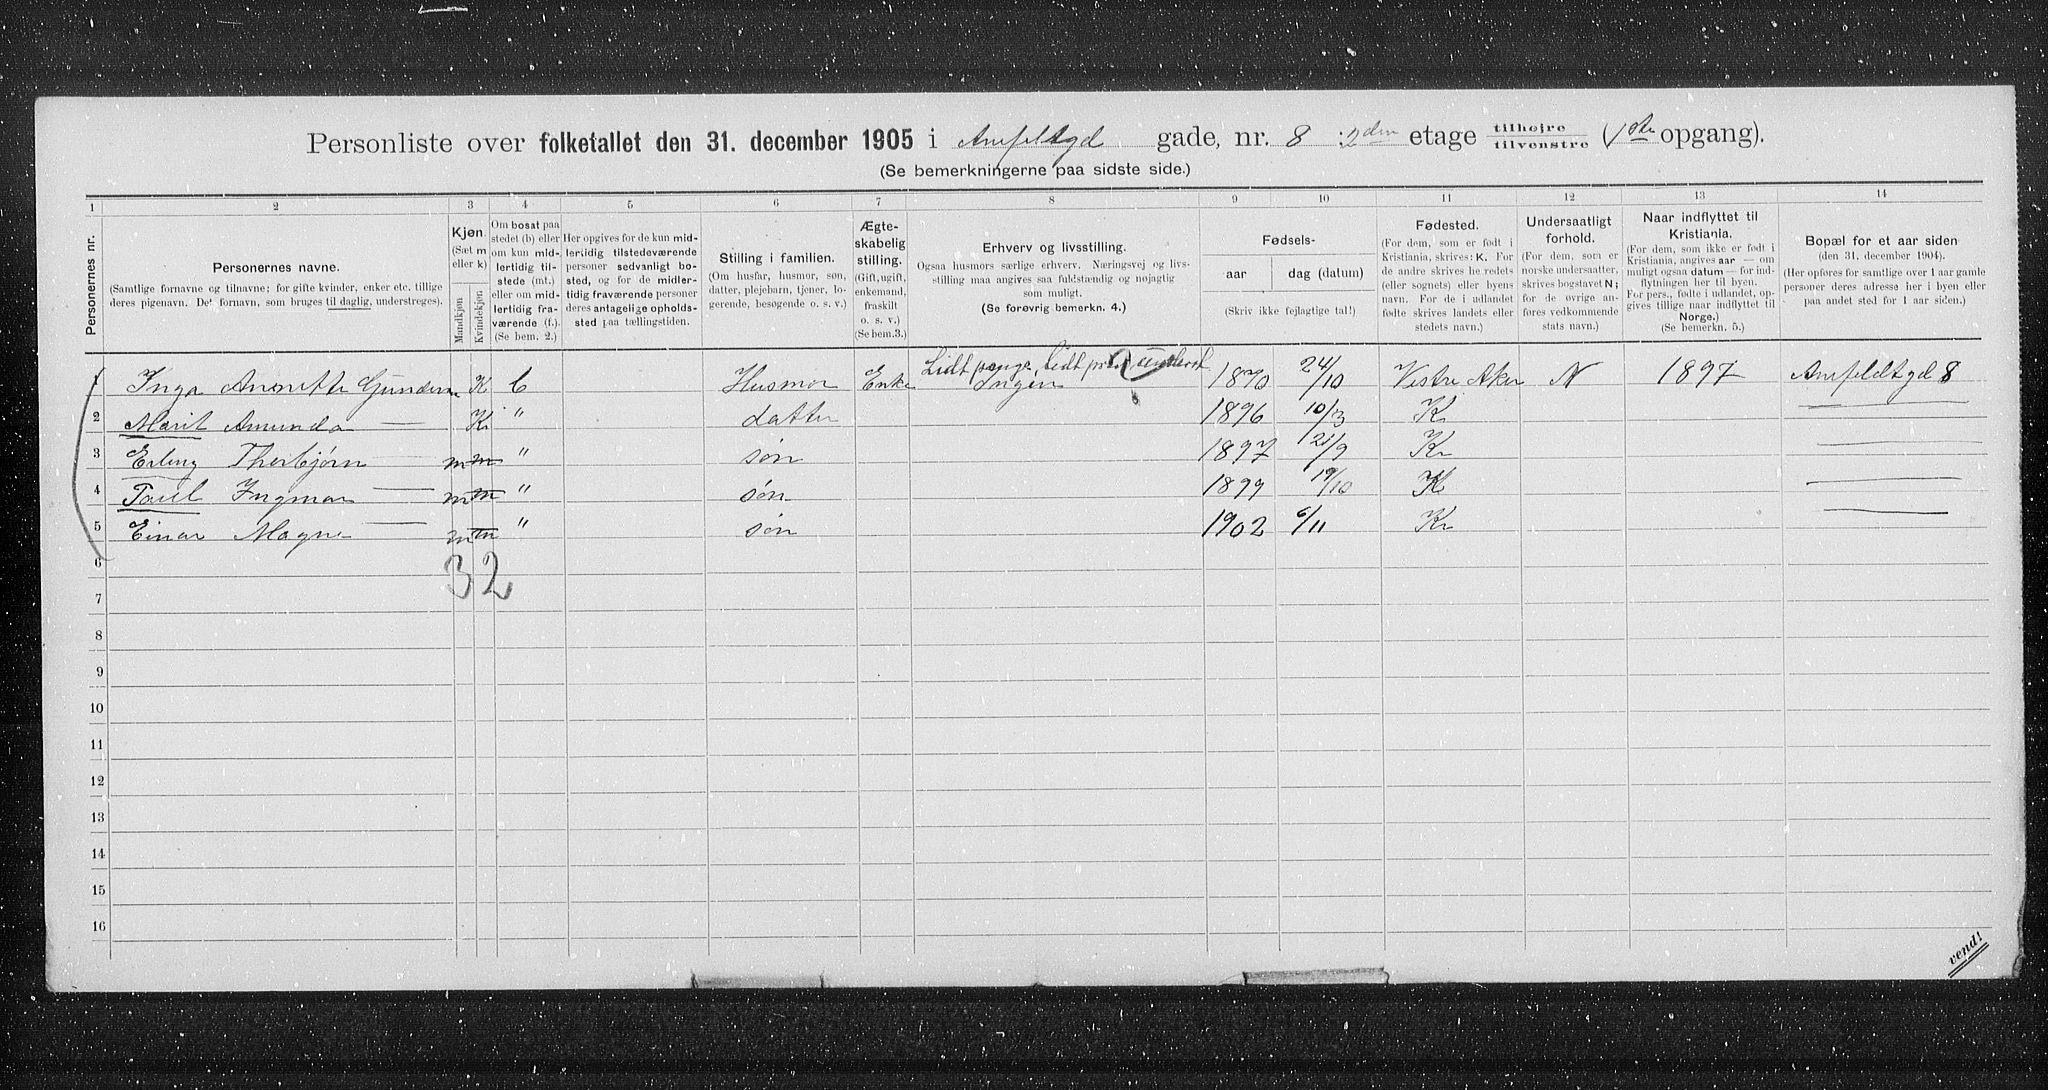 Personliste over folketallet den 31. december 1905 i Anfeltsgd gade, nr. 8 : 2den etage tilhøjre / tilvenstre (1ste opgang).
(Se bemerkningerne paa sidste side.)
1 2 3 4 5 6 7 8 9 10 11 12 13 14
Personernes nr.
Personernes navne.
(Samtlige fornavne og tilnavne; for gifte kvinder, enker etc. tillige
deres pigenavn. Det fornavn, som bruges til daglig, understreges).
Kjøn.
(Sæt m
eller k)
Mandkjøn
Kvindekjøn
Om bosat paa
stedet (b) eller
om kun mid-
lertidig til-
stede (mt.)
eller om mid-
lertidig fra-
værende (f.).
(Se bem. 2.)
Her opgives for de kun mid-
lertidig tilstedeværende
personer sedvanligt bo-
sted, og for de midler-
tidig fraværende personer
deres antagelige opholds-
sted paa tællingstiden.
Stilling i familien.
(Om husfar, husmor, søn,
datter, plejebarn, tjener, lo-
gerende, besøgende o. s. v.)
Ægte-
skabelig
stilling.
(Gift, ugift,
enkemand,
fraskilt
o. s. v.)
(Se bem.3.)
Erhverv og livsstilling.
Ogsaa husmors særlige erhverv. Næringsvej og livs-
stilling maa angives saa fuldstændig og nøjagtig
som muligt.
(Se forøvrig bemerkn. 4.)
Fødsels-
aar dag (datum)
(Skriv ikke fejlagtige tal!)
Fødested.
(For dem, som er født i
Kristiania, skrives: K. For
de andre skrives he redets
(eller sognets) eller byens
navn. For de i udlandet
fødte skrives landets eller
stedets navn.)
Undersaatligt
forhold.
(For dem, som er
norske undersaatter,
skrives bogstavet N;
for de øvrige an-
føres vedkommende
stats navn.)
Naar indflyttet til
Kristiania.
(For dem, som ikke er født i
Kristiania, angives aar — om
muligt ogsaa datum — for ind-
flytningen her til byen.
For pers., fødte i udlandet, op-
gives tillige naar indflyttet til
Norge.)
(Se bemerkn. 5.)
Bopæl for et aar siden
(den 31. december 1904).
(Her opføres for samtlige over 1 aar gamle
personer deres adresse her i byen eller
paa andet sted for 1 aar siden.)
Lidt penge, lidt
1 Inga Annette Gundersen K b Husmor Enke Ingen 1870 24/10 Vestre Aker N 1897 Anfeldtsgd 8
2 Marit Amunda — K " datter 1896 10/3 K —
3 Erling Thorbjørn — m m " søn 1897 21/9 Kr —
4 Paul Ingmar — m m " søn 1899 19/10 K —
5 Einar Magne — m m " søn 1902 6/11 Kr —
6 3 2
7
8
9
10
11
12
13
14
15
16
vend!